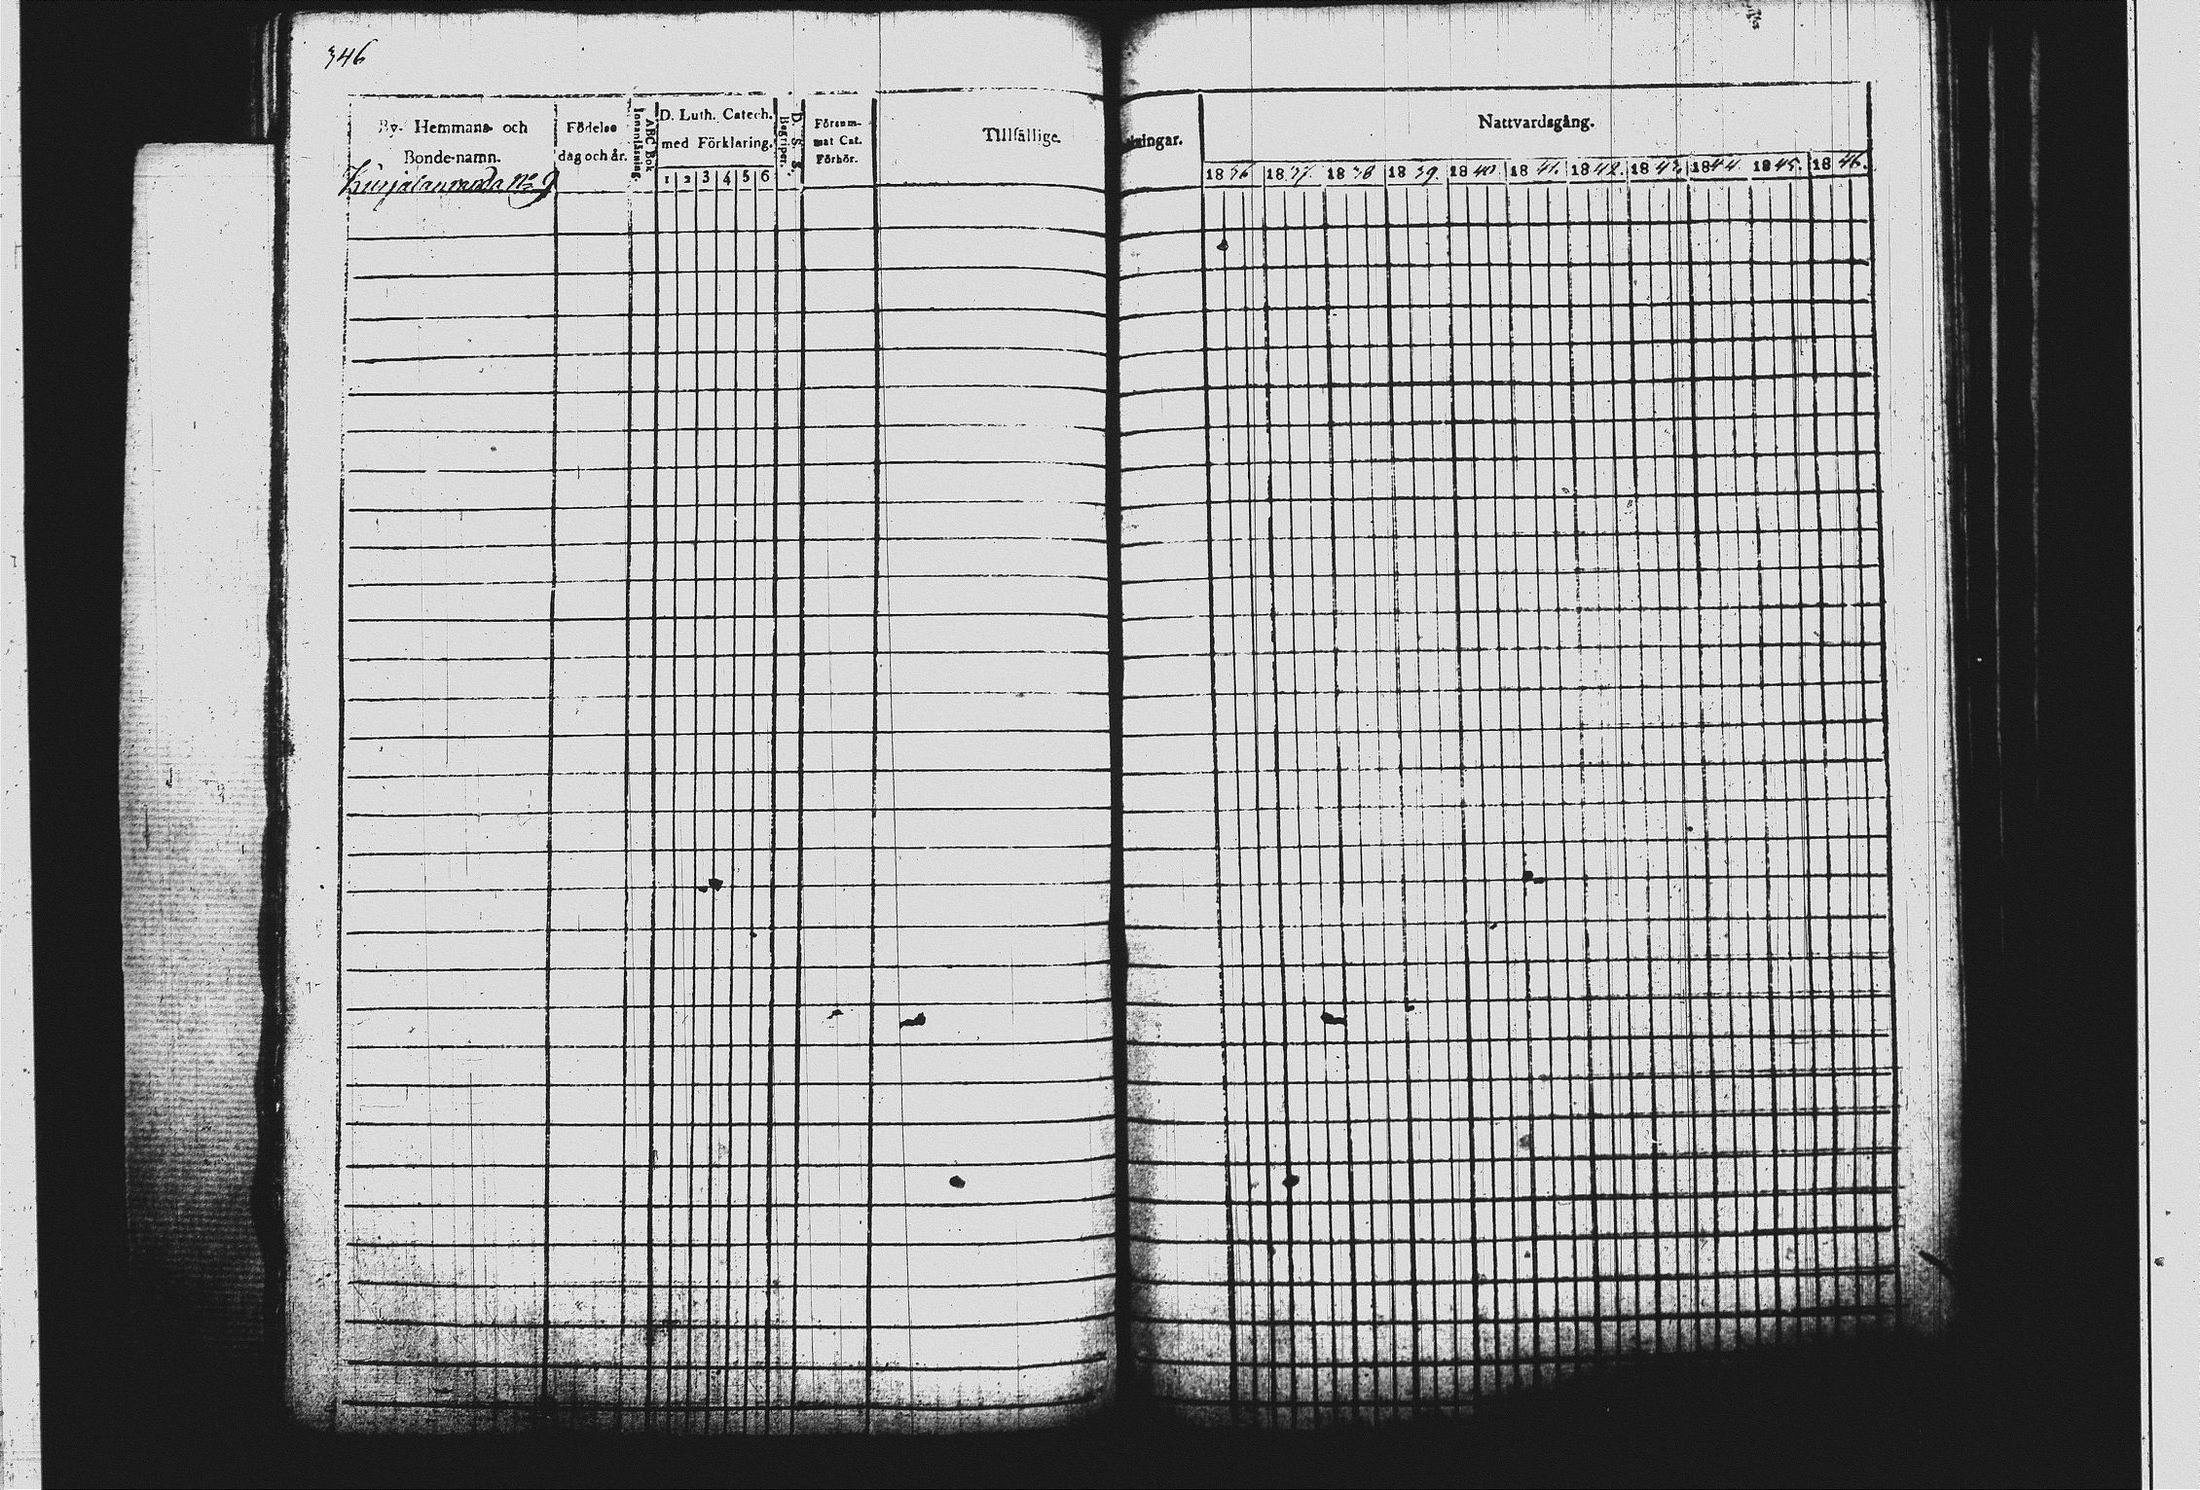 346
By- Hemmans- och
Bonde-namn.
Födelse
dag och år.
ABC Bok
Innanläsning.
D. Luth. Catech.
med Förklaring.
1 2 3 4 5 6
D. S. S.
Begriper.
Försum-
mat Cat.
Förhör.
Tillfällige
Nattvardsgång.
No 9
1836 1837. 1838 1839. 1840. 1841. 1842. 1843. 1844. 1845. 1846.